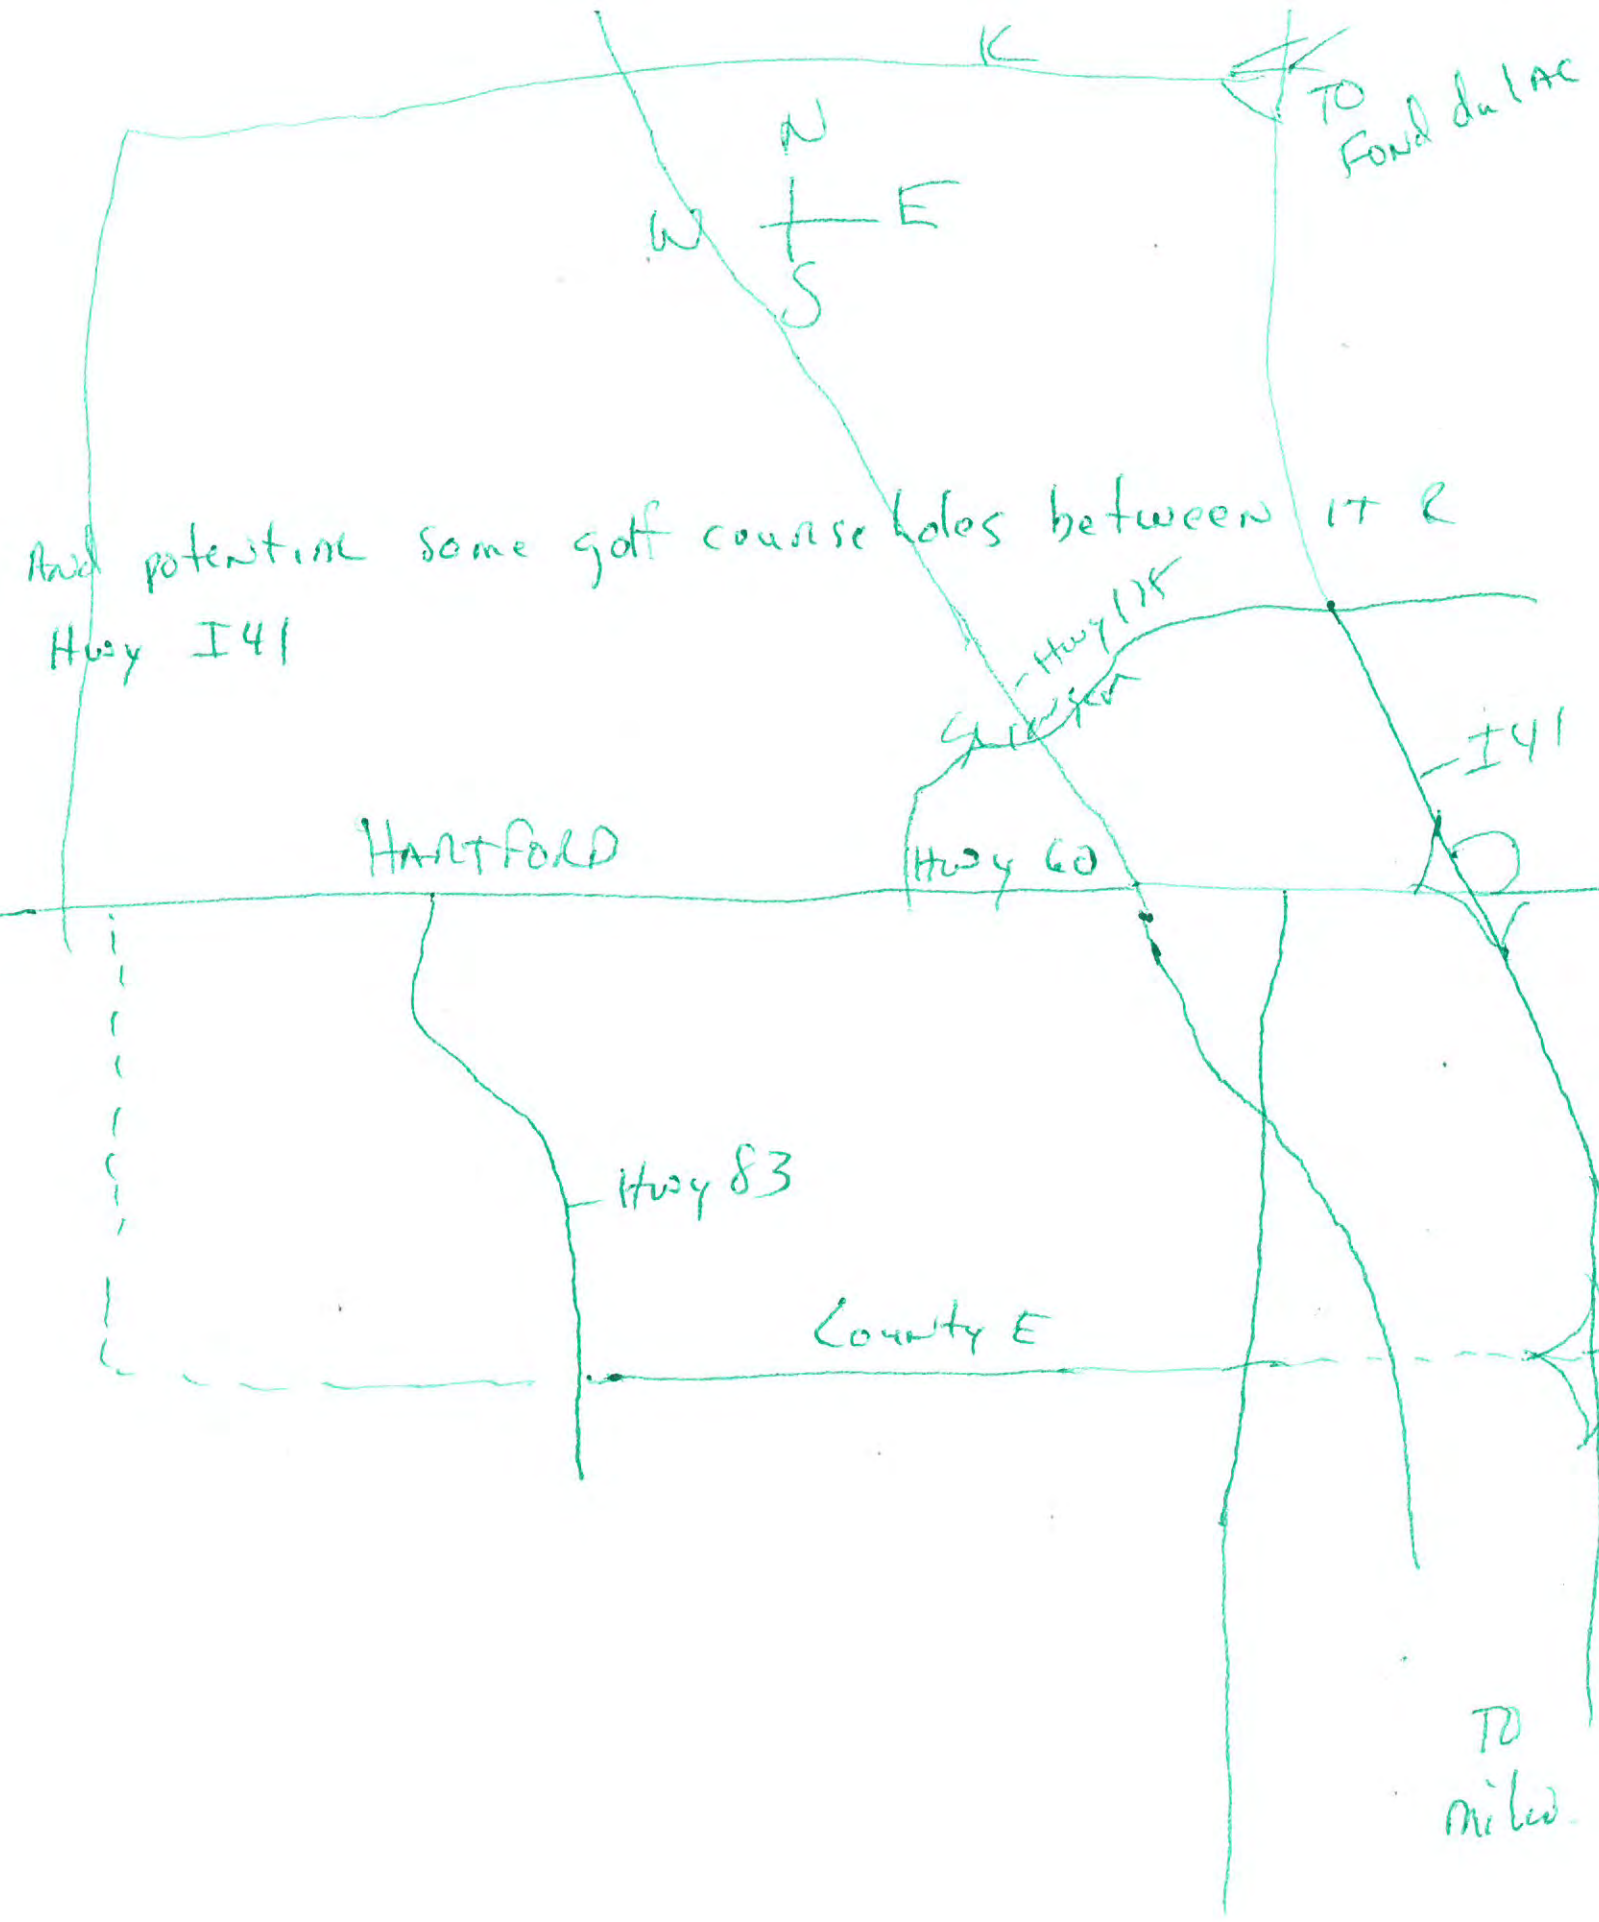 K
TO
Fond du LAC
N
W E
S
And potential some golf course holes between IT &
Hwy I41
Hwy 175
I41
HARTFORD
Hwy 60
Hwy 83
County E
TO
milw.